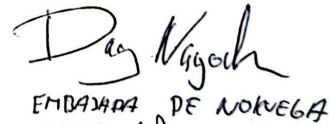 Dag Nagoda
EMBAJADA DE NORUEGA